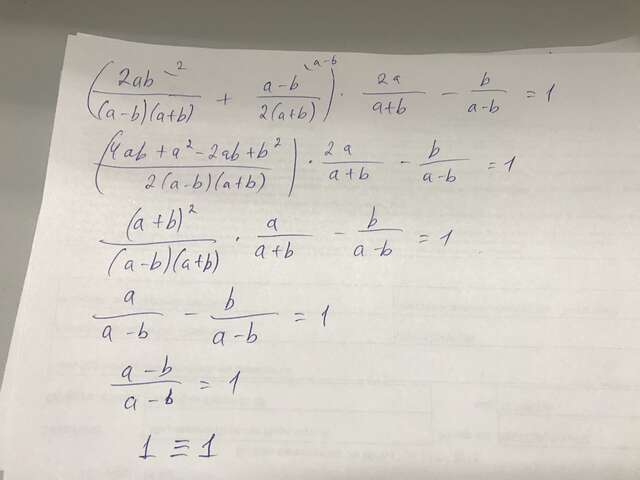 (2ab^{\2}/((a-b)(a+b)) + (a-b)^{\a-b}/(2(a+b))) · 2a/(a+b) - b/(a-b) = 1
((4ab + a² - 2ab + b²)/(2(a-b)(a+b))) · 2a/(a+b) - b/(a-b) = 1
(a+b)²/((a-b)(a+b)) · a/(a+b) - b/(a-b) = 1
a/(a-b) - b/(a-b) = 1
(a-b)/(a-b) = 1
1 ≡ 1